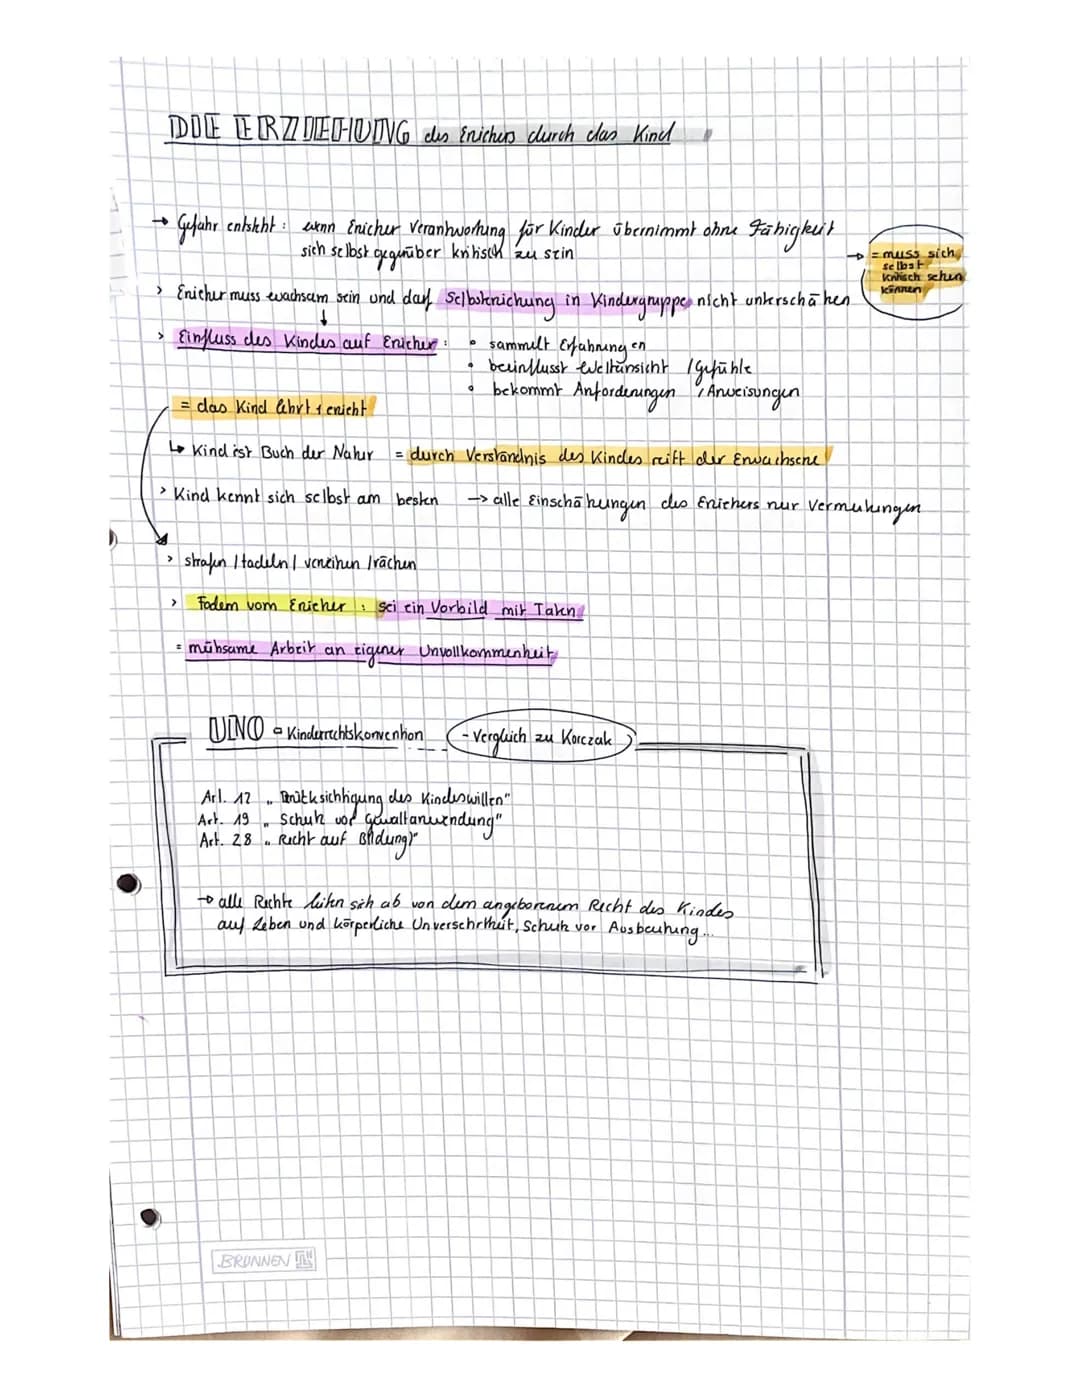 DIE ERZIEHUNG des Erziehers durch das Kind
→ Gefahr entsteht : wenn Erzieher Verantwortung für Kinder übernimmt ohne Fähigkeit
sich selbst gegenüber kritisch zu sein
→ = muss sich
selbst
kritisch sehen
können
> Erzieher muss wachsam sein und darf Selbsterziehung in Kindergruppe nicht unterschätzen
↓
> Einfluss des Kindes auf Erzieher : • sammelt Erfahrungen
• beeinflusst Weltansicht / Gefühle
• bekommt Anforderungen / Anweisungen
= das Kind lehrt & erzieht
↳ Kind ist Buch der Natur = durch Verständnis des Kindes reift der Erwachsene
> Kind kennt sich selbst am besten → alle Einschätzungen des Erziehers nur Vermutungen
> strafen / tadeln / verzeihen / rächen
> Fodern vom Erzieher : sei ein Vorbild mit Taten
= mühsame Arbeit an eigener Unvollkommenheit
UNO - Kinderrechtskonvention - Vergleich zu Korczak
Art. 12 „ Berücksichtigung des Kindeswillen"
Art. 19 „ Schutz vor Gewaltanwendung"
Art. 28 „ Recht auf Bildung"
→ alle Rechte leiten sich ab von dem angeborenem Recht des Kindes
auf Leben und körperliche Unversehrtheit, Schutz vor Ausbeutung...
BRUNNEN